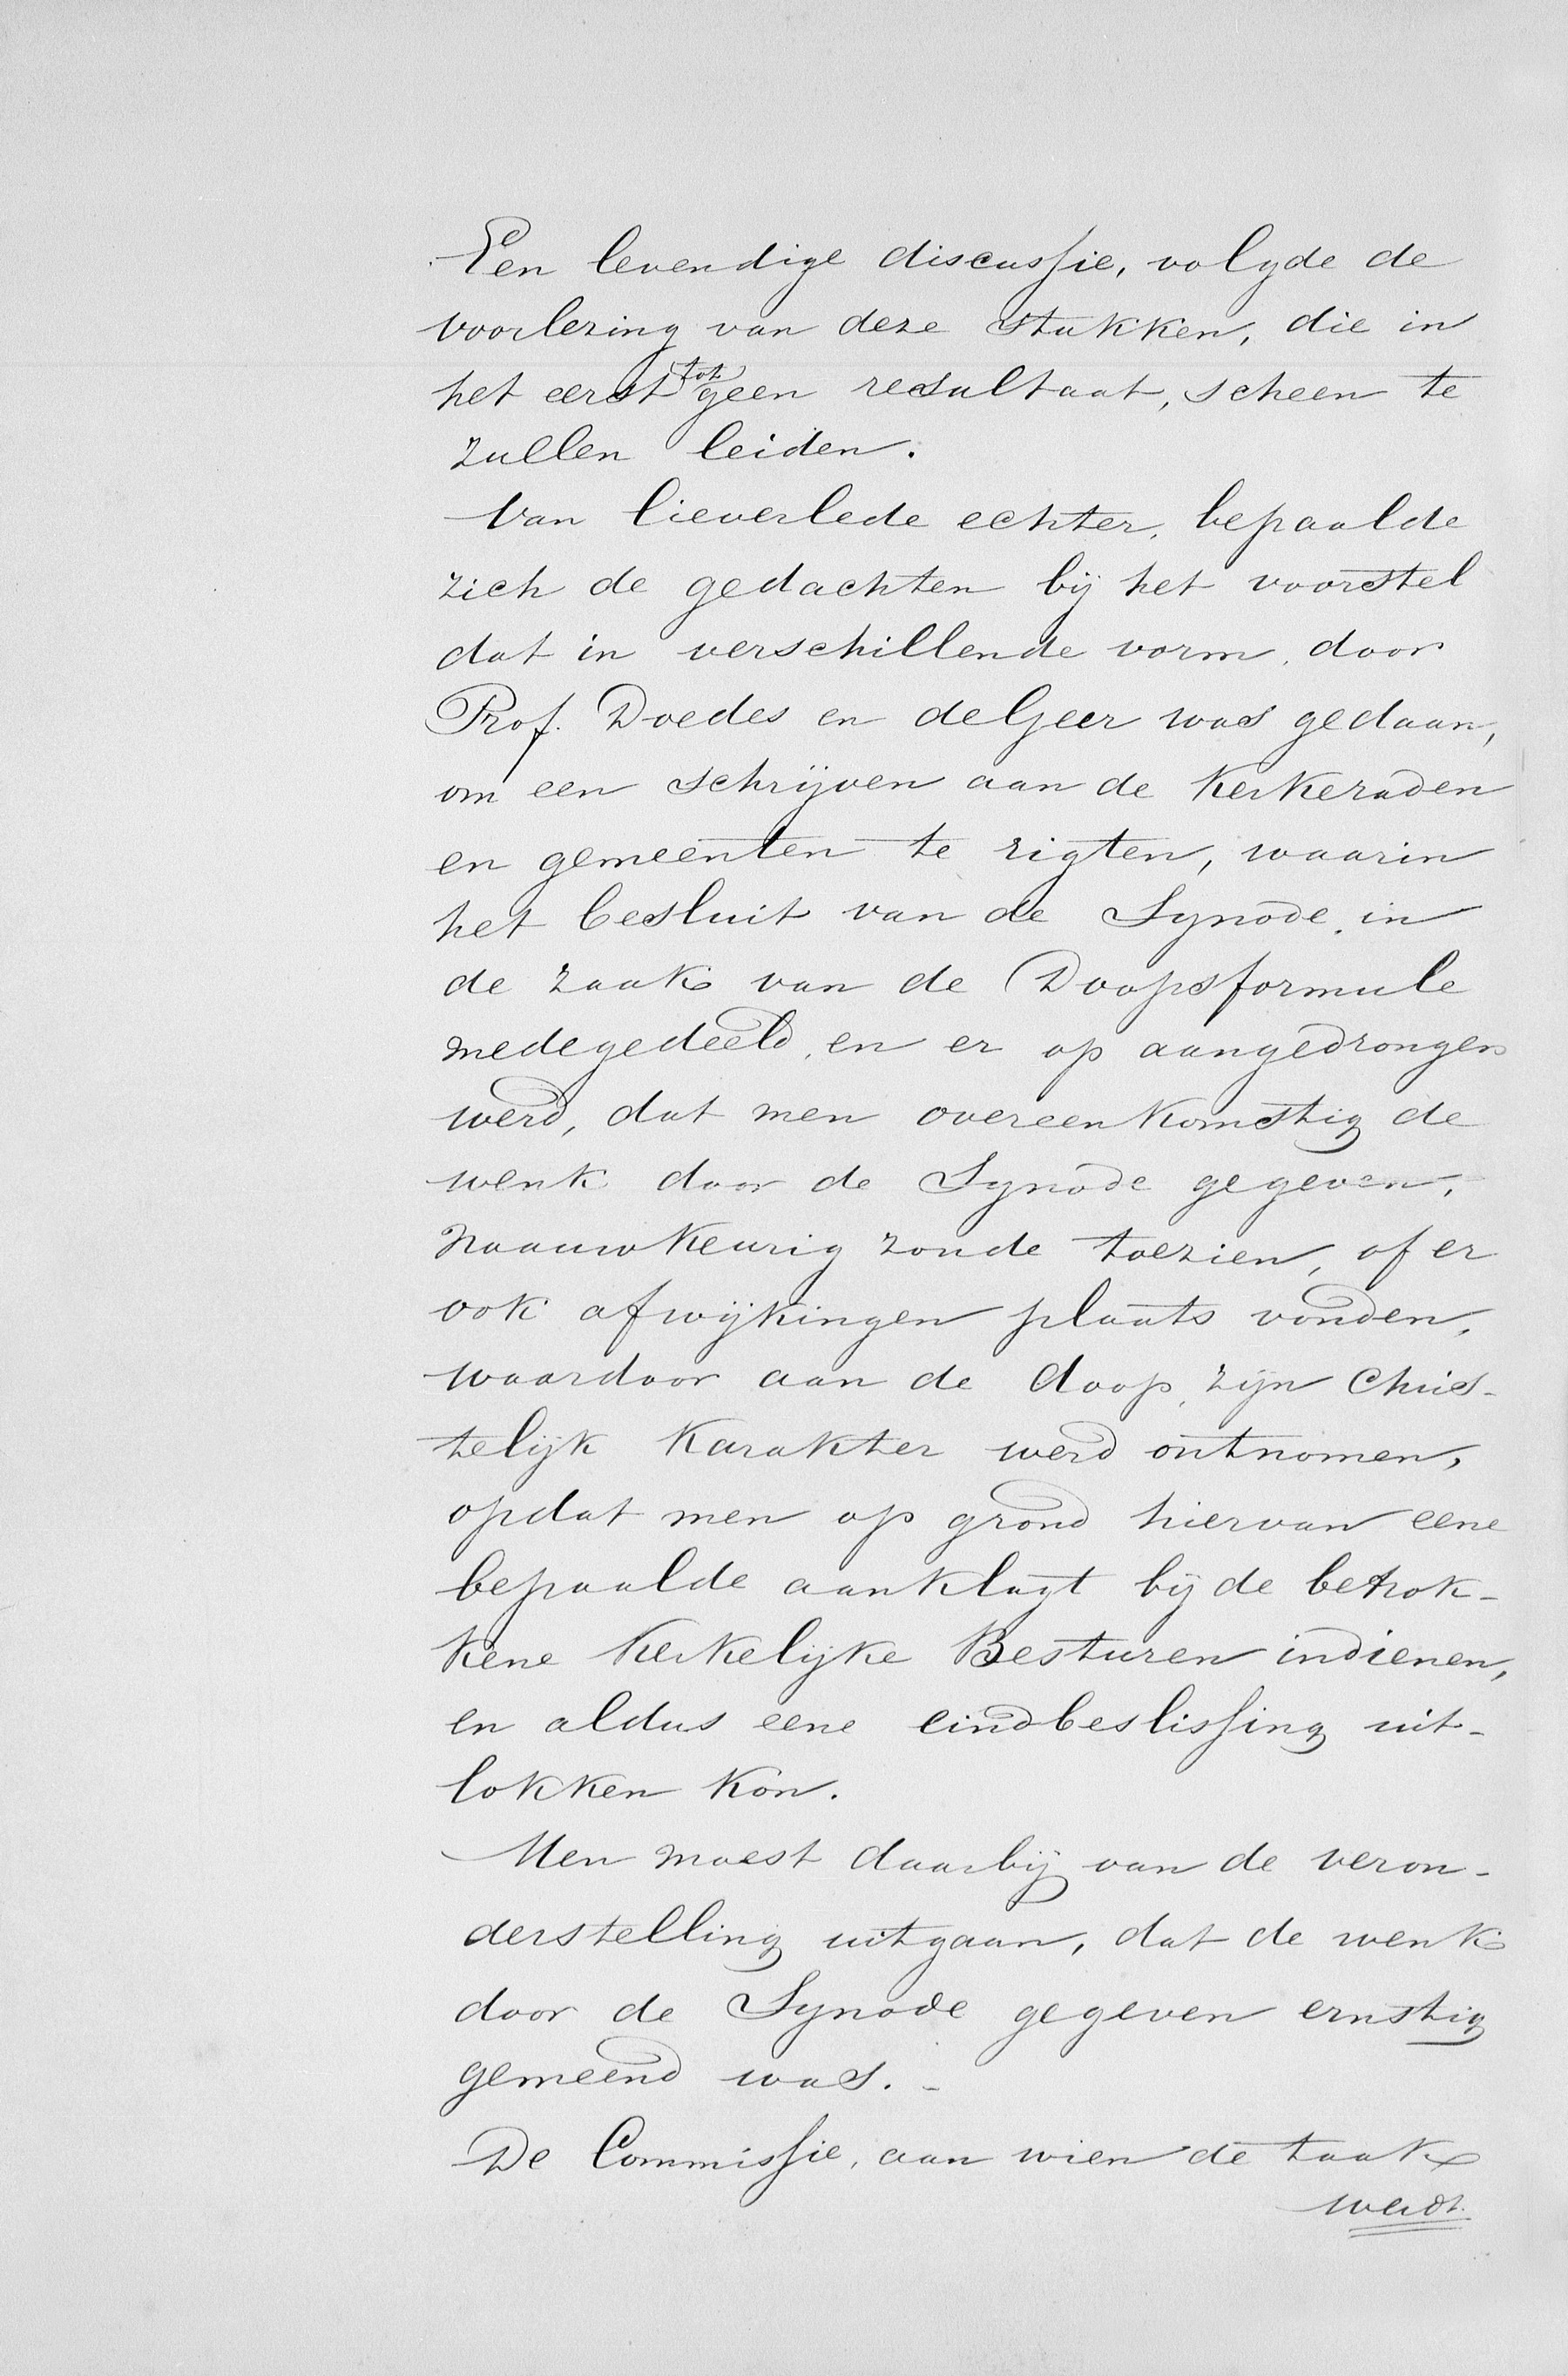 Een levendige discussie, volgde de
voorlezing van deze stukken, die in
het eerst tot geen resultaat, scheen te
zullen leiden.
Van lieverlede echter, bepaalde
zich de gedachten bij het voorstel
dat in verschillende vorm, door
Prof. Doedes en de Geer was gedaan,
om een schrijven aan de Kerkeraden
en gemeenten te rigten, waarin
het besluit van de Synode, in
de zaak van de Doopsformule
medegedeeld, en er op aangedrongen
werd, dat men overeenkomstig de
wenk door de Synode gegeven,
naauwkeurig zoude toezien, of er
ook afwijkingen plaats vonden,
waardoor aan de doop, zijn Chris-
telijk karakter werd ontnomen,
opdat men op grond hiervan eene
bepaalde aanklagt bij de betrok-
kene Kerkelijke Besturen indienen,
en aldus eene eindbeslissing uit-
lokken kon.
Men moest daarbij van de veron-
derstelling uitgaan, dat de wenk
door de Synode gegeven ernstig
gemeend was. -
De Commissie, aan wien de taak
werdt